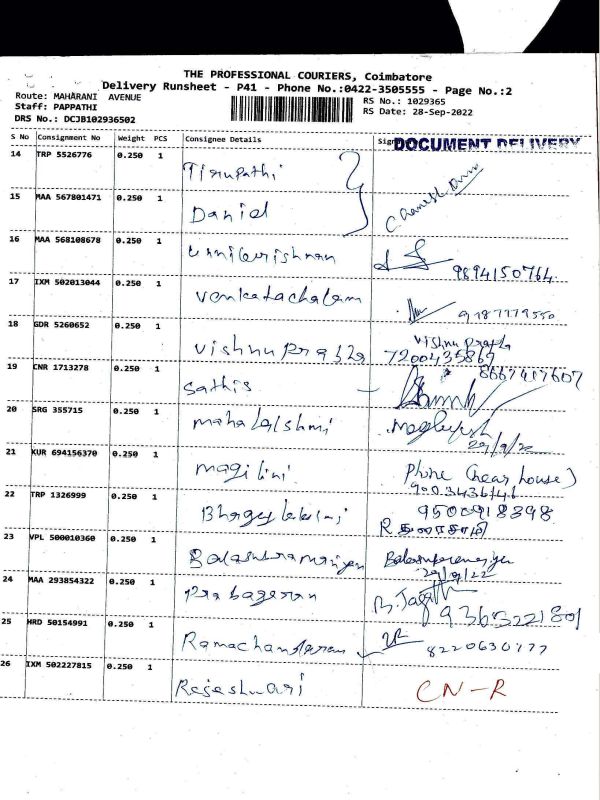 THE PROFESSIONAL COURIERS, Coimbatore
Delivery Runsheet - P41 - Phone No.:0422-3505555 - Page No.:2
Route: MAHARANI AVENUE
Staff: PAPPATHI
RS No.: 1029365
RS Date: 28-Sep-2022
DRS No.: DCJB102936502
S No Consignment No Weight PCS Consignee Details Sig
DOCUMENT DELIVERY
14 TRP 5526776 0.250 1 Tirupathi
15 MAA 567801471 0.250 1 Daniel
16 MAA 568108678 0.250 1 Unnikrishnan 9894150764
17 IXM 502013044 0.250 1 Venkatachalam 9187779550
18 GDR 5260652 0.250 1 Vishnu Prabha Vishnu Prabha
7200435867
8667417607
19 CNR 1713278 0.250 1 Sathis
20 SRG 355715 0.250 1 mahalalshmi
29/9/22
21 KUR 694156370 0.250 1 magilini Phone (near house)
22 TRP 1326999 0.250 1 9500918398
R துரைசாமி
23 VPL 500010360 0.250 1 Balasubramaniyan
29/9/22
24 MAA 293854322 0.250 1 Prabagaran B. Jagath
25 HRD 50154991 0.250 1 Ramachandaran 8220630777
26 IXM 502227815 0.250 1 Rajeshwari CN-R